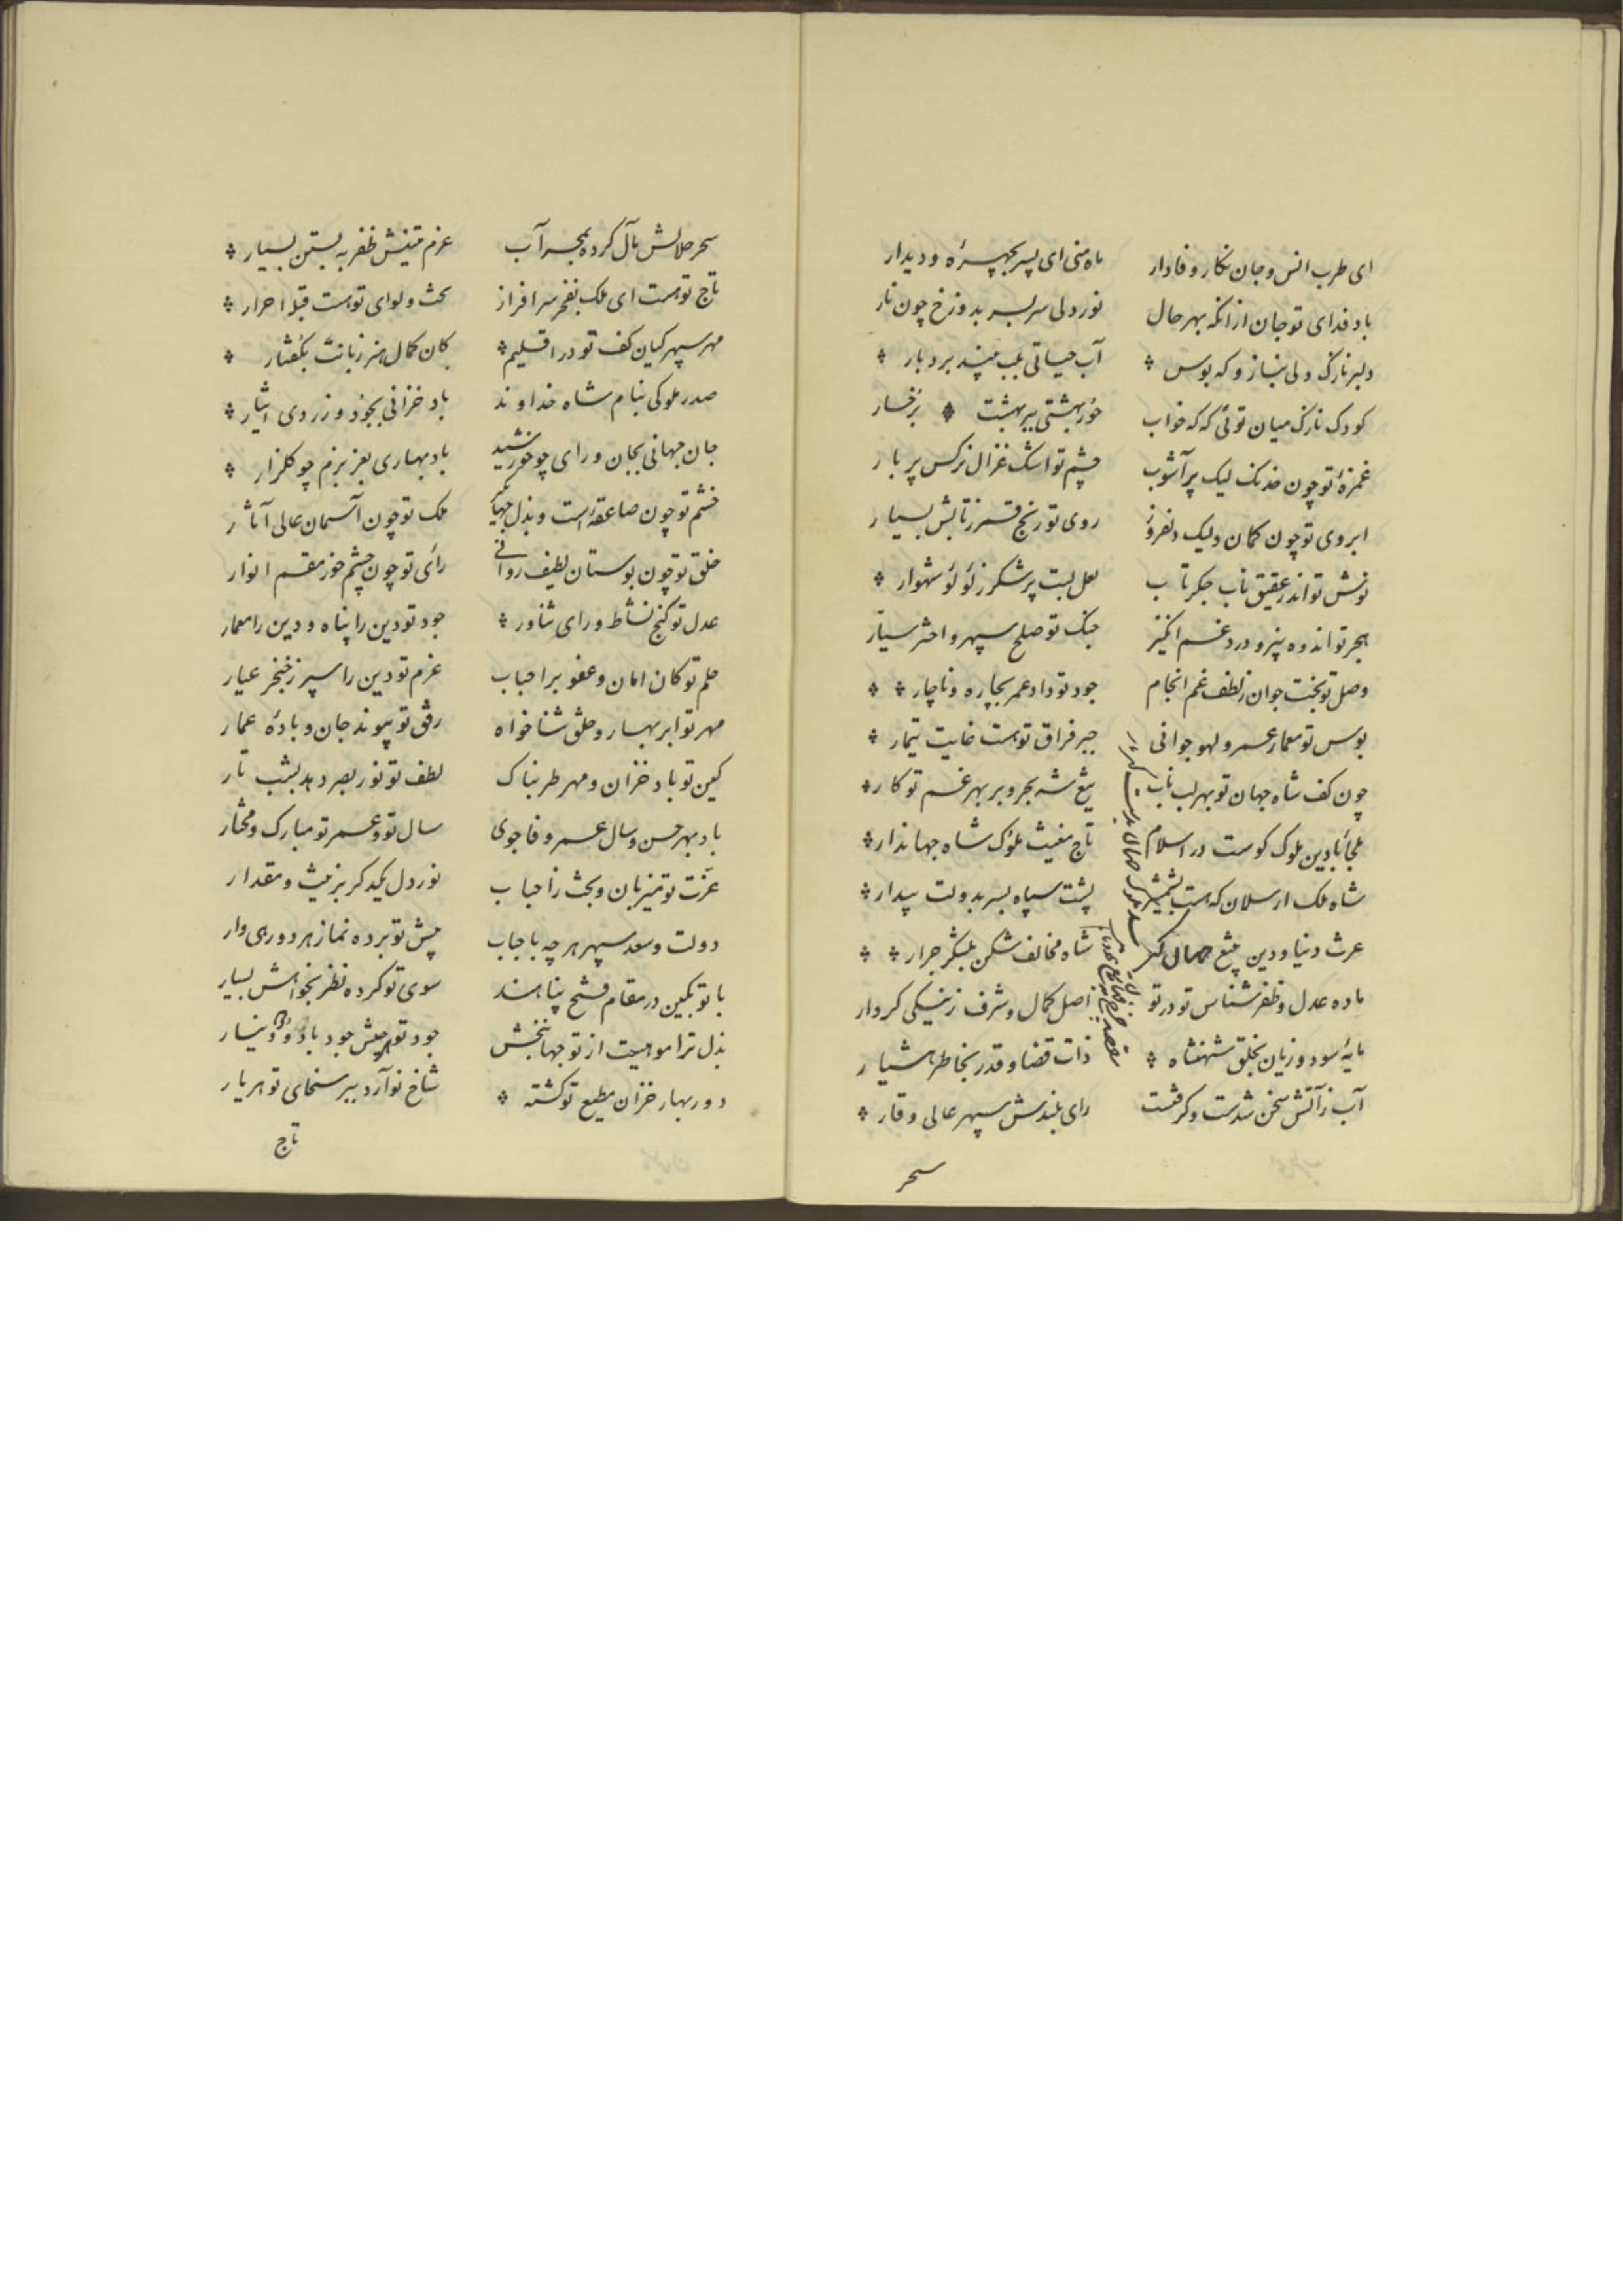 ای طرب انس و جان نکار وفادار ماه منی ای پسر بچهرۀ و دیدار
باد فدای تو جان از انکه بهر حال نور دلی سر بسر بدو زخ چون نار
دلبر نازک دلی بناز و که بوس آب حیاتی بلب بپند بردبار
کودک نازک میان توئی که که خواب حور بهشتی ببر بهشت برخسار
غمزۀ تو چون خدنک لیک پر آشوب چشم تو اشک غزال نرکس پر بار
ابروی تو چون کمان ولیک دلفروز روی تو رنج قمر ز تابش بسیار
نوش تو اندر عقیق ناب جکر تاب لعل لبت پر شکر ز لؤلؤ شهوار
هجر تو اندوه پیر و درد غم انکیز جنک تو صلح سپهر و اختر سیار
وصل تو بخت جوان ز لطف غم انجام جود تو داد عمر بچاره و ناچار
بوس تو معمار عمر و لهو جوانی جبر فراق تو هست غایت تیمار
چون کف شاه جهان تو بهر لب ناب تیغ شه بحر و بر بهر غم تو کار
ملجأ بادین ملوک کوست در اسلام تاج مغیث ملوک شاه جهاندار
شاه ملک ارسلان که هست بشمشیر پشت سپاه بسر بدولت بیدار
عرث دنیا و دین بتیغ شاه مخالف شکن بلشکر جرار
ماده عدل و ظفر شناس تو در تو اصل کمال و شرف ز نیکی کردار
مایۀ سود و زیان بخلق شهنشاه ذات قضا و قدر بخاطر هشیار
آب ز آتش سخن شدست و کرفت رای بلندش سپهر عالی وقار
سحر
سحر حلالش بآل کرده بحر آب عزم متینش ظفر به بستن بسیار
تاج تو هست ای ملک بفخر سرافراز بخت و لوای تو هست قبله احرار
مهر سپهر کیان کف تو در اقلیم کان کمال هنر زبانت بکفتار
صدر ملوکی بنام شاه خداوند باد خزانی بجود و زردی ایثار
جان جهانی بجان و رای چو خورشید باد بهاری بعز بزم چو کلزار
خشم تو چون صاعقه است و بذل ملک تو چون آسمان عالی آثار
خلق تو چون بوستان لطیف روانی رأی تو چون چشم خور مقسم انوار
عدل تو کنج نشاط و رای ثناور جود تو دین را پناه و دین را معمار
حلم تو کان امان و عفو بر احباب عزم تو دین را سپر ز خنجر عیار
مهر تو ابر بهار و خلق ثنا خواه رفق تو پیوند جان و بادۀ عمار
کین تو باد خزان و مهر طربناک لطف تو نور بصر دهد بشب تار
باد بهر حسن و سال عمر وفا جوی سال تو و عمر تو مبارک و مختار
عزت تو میزبان و بخت ز احباب نور دل یکدکر بزینت و مقدار
دولت و سعد سپهر هر چه باجباب پیش تو برده نماز هر دو رهی وار
با تو بکین در مقام فتح پناهند سوی تو کرده نظر بخواهش بسیار
بذل ترا موهبت از تو جهانبخش جود تو جیش جود باد و دینار
دور بهار خزان مطیع تو کشته شاخ نو آرد ببر سخای تو هر بار
تاج